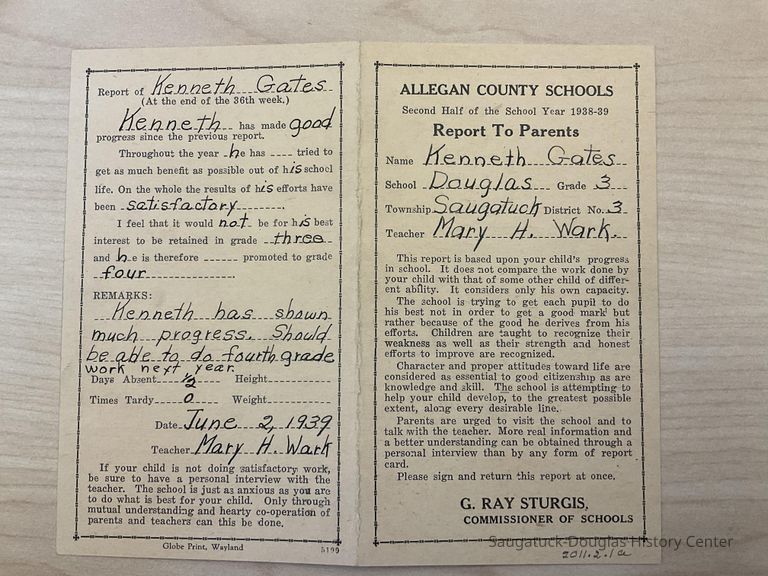 Report of Kenneth Gates
(At the end of the 36th week.)
Kenneth has made good
progress since the previous report.
Throughout the year he has ---- tried to
get as much benefit as possible out of his school
life. On the whole the results of his efforts have
been satisfactory.
I feel that it would not be for his best
interest to be retained in grade three
and he is therefore ------ promoted to grade
four
REMARKS:
Kenneth has shown
much progress. Should
be able to do fourth grade
work next year.
Days Absent 1/2 Height
Times Tardy 0 Weight
Date June 2, 1939
Teacher Mary H. Wark
If your child is not doing satisfactory work,
be sure to have a personal interview with the
teacher. The school is just as anxious as you are
to do what is best for your child. Only through
mutual understanding and hearty co-operation of
parents and teachers can this be done.
Globe Print, Wayland 5199
ALLEGAN COUNTY SCHOOLS
Second Half of the School Year 1938-39
Report To Parents
Name Kenneth Gates
School Douglas Grade 3
Township Saugatuck District No. 3
Teacher Mary H. Wark.
This report is based upon your child's progress
in school. It does not compare the work done by
your child with that of some other child of differ-
ent ability. It considers only his own capacity.
The school is trying to get each pupil to do
his best not in order to get a good mark but
rather because of the good he derives from his
efforts. Children are taught to recognize their
weakness as well as their strength and honest
efforts to improve are recognized.
Character and proper attitudes toward life are
considered as essential to good citizenship as are
knowledge and skill. The school is attempting to
help your child develop, to the greatest possible
extent, along every desirable line.
Parents are urged to visit the school and to
talk with the teacher. More real information and
a better understanding can be obtained through a
personal interview than by any form of report
card.
Please sign and return this report at once.
G. RAY STURGIS,
COMMISSIONER OF SCHOOLS
Saugatuck-Douglas History Center
2011.2.1a